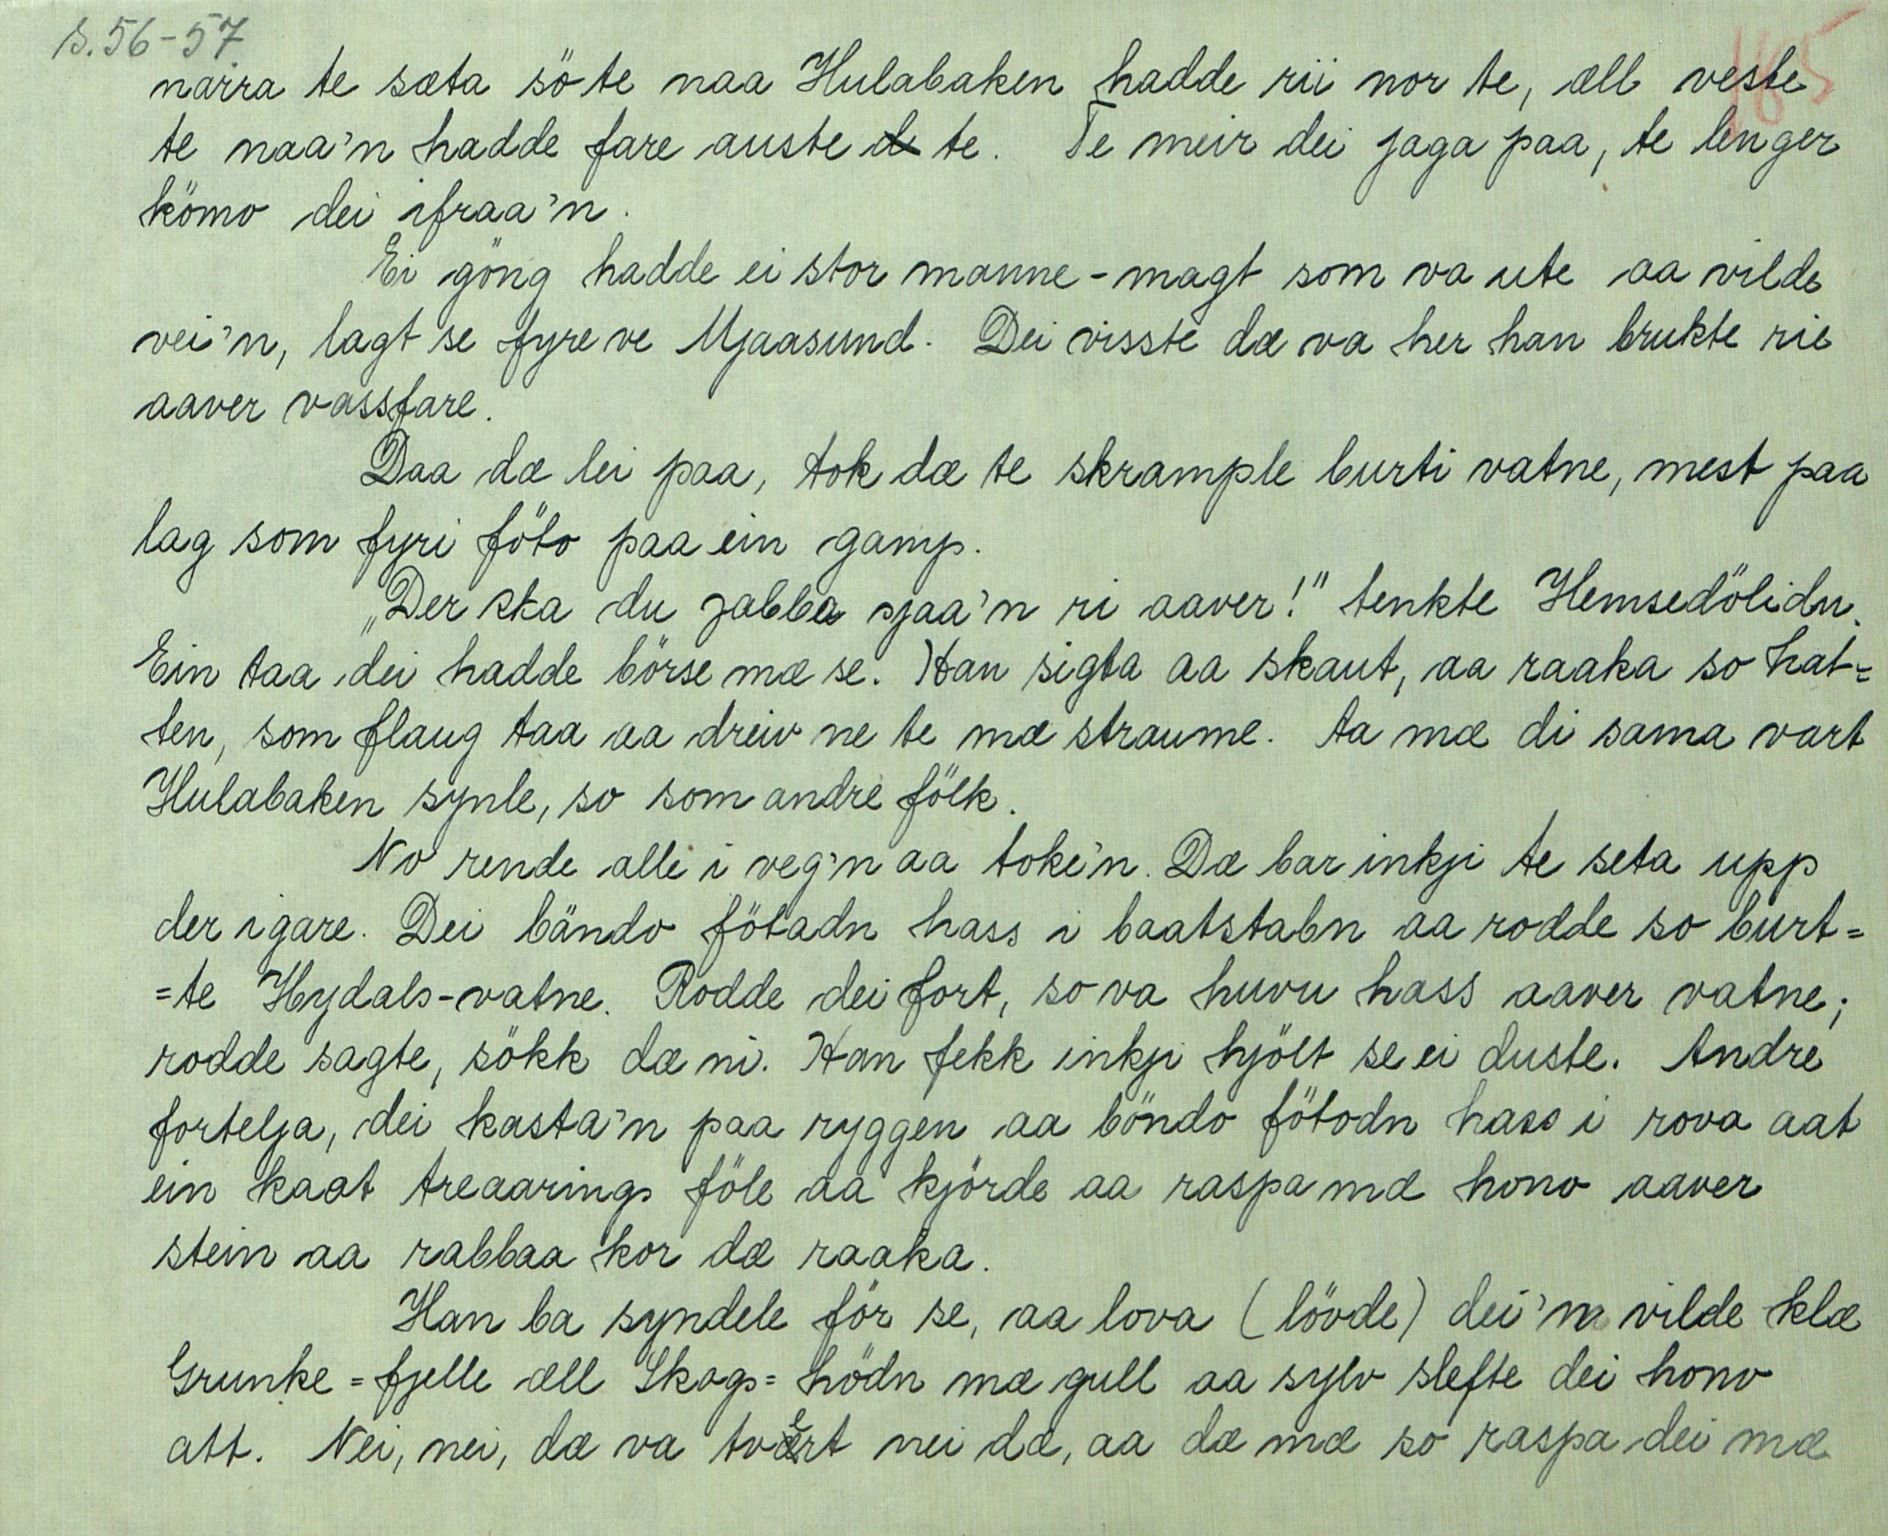 s. 56-57
185
narra te sæta sö te naa Hulabaken hadde rii nor te, æll veste
te naa'n hadde fare auste te. Te meir dei jaga paa, te lenger
kömo dei ifraa'n.
Ei göng hadde ei stor manne-magt som va ute aa vilde
vei'n, lagt se fyre ve Mjaasund. Dei visste dæ va her han brukte rie
aaver vassfare.
Daa dæ lei paa, tok dæ te skrample burti vatne, mest paa
lag som fyri föto paa ein gamp.
„Der ska du jabba sjaa'n ri aaver!" tenkte Hemsedölidn.
Ein taa dei hadde börse mæ se. Han sigta aa skaut, aa raaka so hat=
ten, som flaug taa aa dreiv ne te mæ straume. Ta mæ di sama vart
Hulabaken synle, so som andre fölk.
No rende alle i veg'n aa toke'n. Dæ bar inkji te seta upp
der igare. Dei bändo fötadn hass i baatstabn aa rodde so burt=
=te Hydals-vatne. Rodde dei fort, so va huvu hass aaver vatne;
rodde sagte, sökk dæ ni. Han fekk inkji hjölt se ei duste. Andre
fortelja, dei kasta'n paa ryggen aa böndo fötodn hass i rova aat
ein kaat treaarings föle aa kjörde aa raspa mæ hono aaver
stein aa rabbaa kor dæ raaka.
Han ba syndele för se, aa lova (lövde) dei'm vilde klæ
Grunke=fjelle æll Skogs=hödn mæ gull aa sylv slefte dei hono
att. Nei, nei, dæ va tvert nei dæ, aa dæ mæ so raspa dei mæ